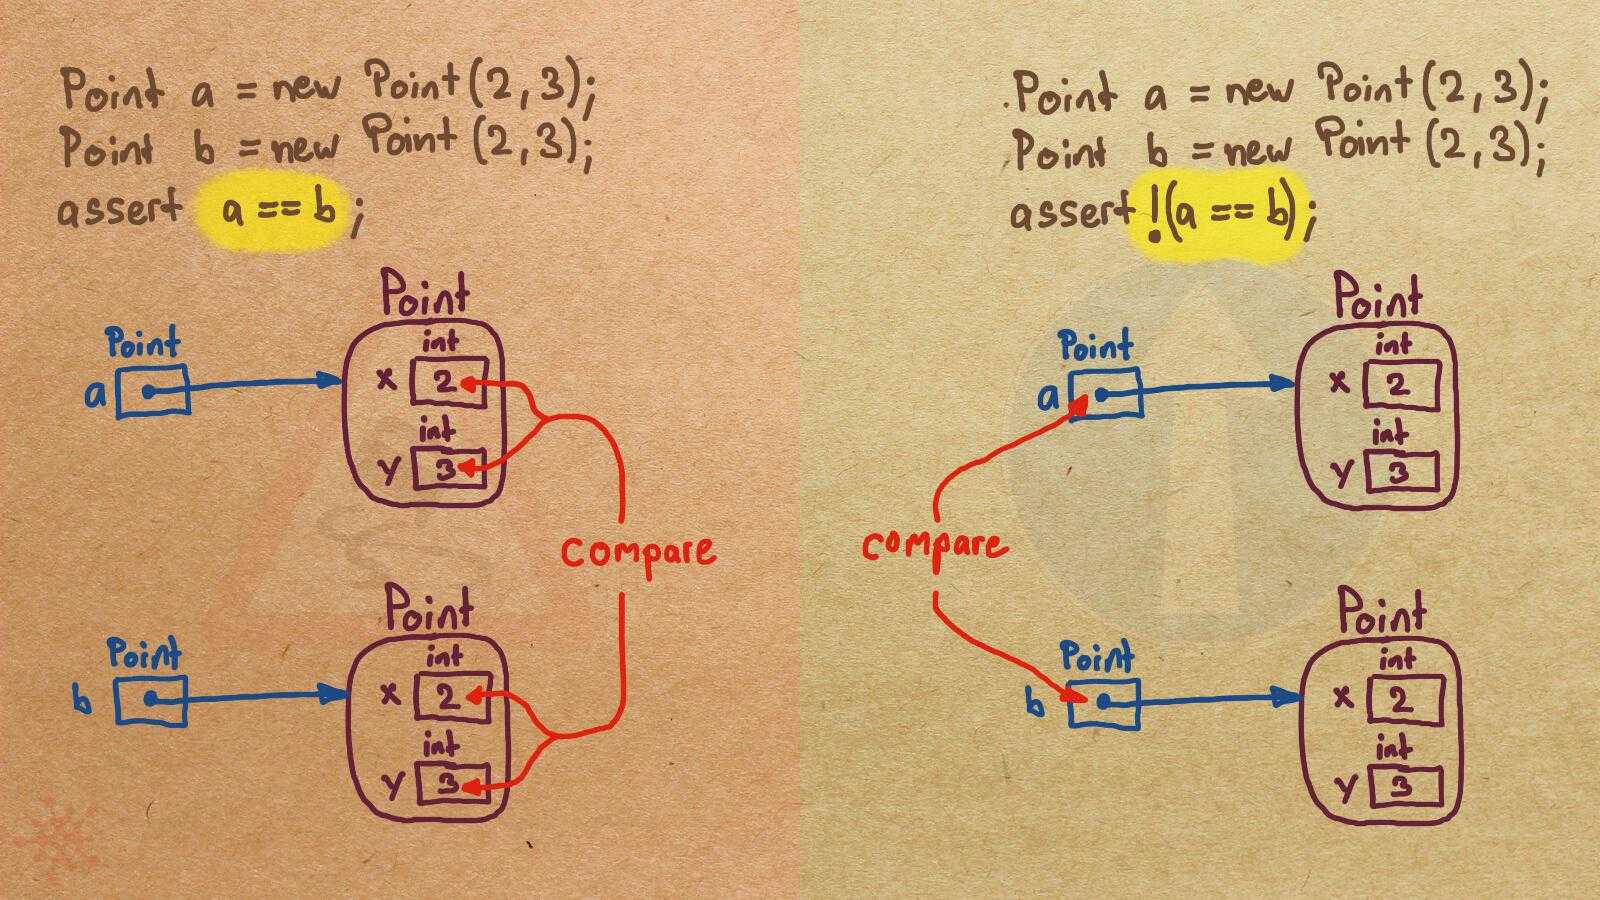 Point a = new Point(2,3);
Point b = new Point(2,3);
assert a == b;
Point
Point
int
a
x 2
int
y 3
compare
Point
Point
int
b
x 2
int
y 3
Point a = new Point(2,3);
Point b = new Point(2,3);
assert !(a == b);
Point
Point
int
a
x 2
int
y 3
compare
Point
Point
int
b
x 2
int
y 3